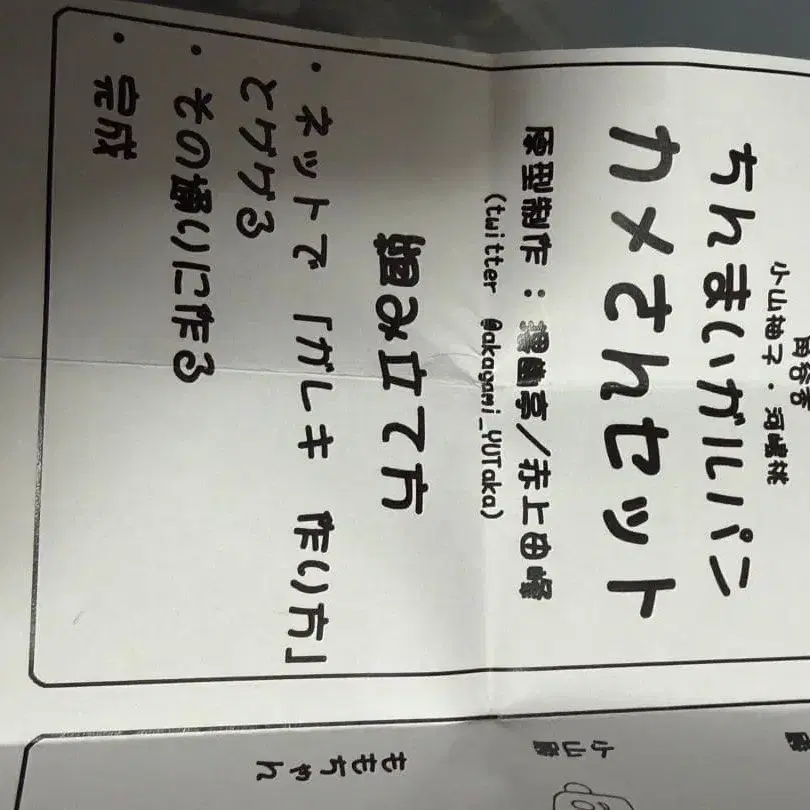 角谷杏
小山柚子・河嶋桃
ちんまいガルパン
カメさんセット
原型制作:亭/赤上由
(twitter @akagami_YUTaka)
組み立て方
・ネットで「ガレキ 作り方」
とググる
・その りに作る
・完成
小山
ももちゃん